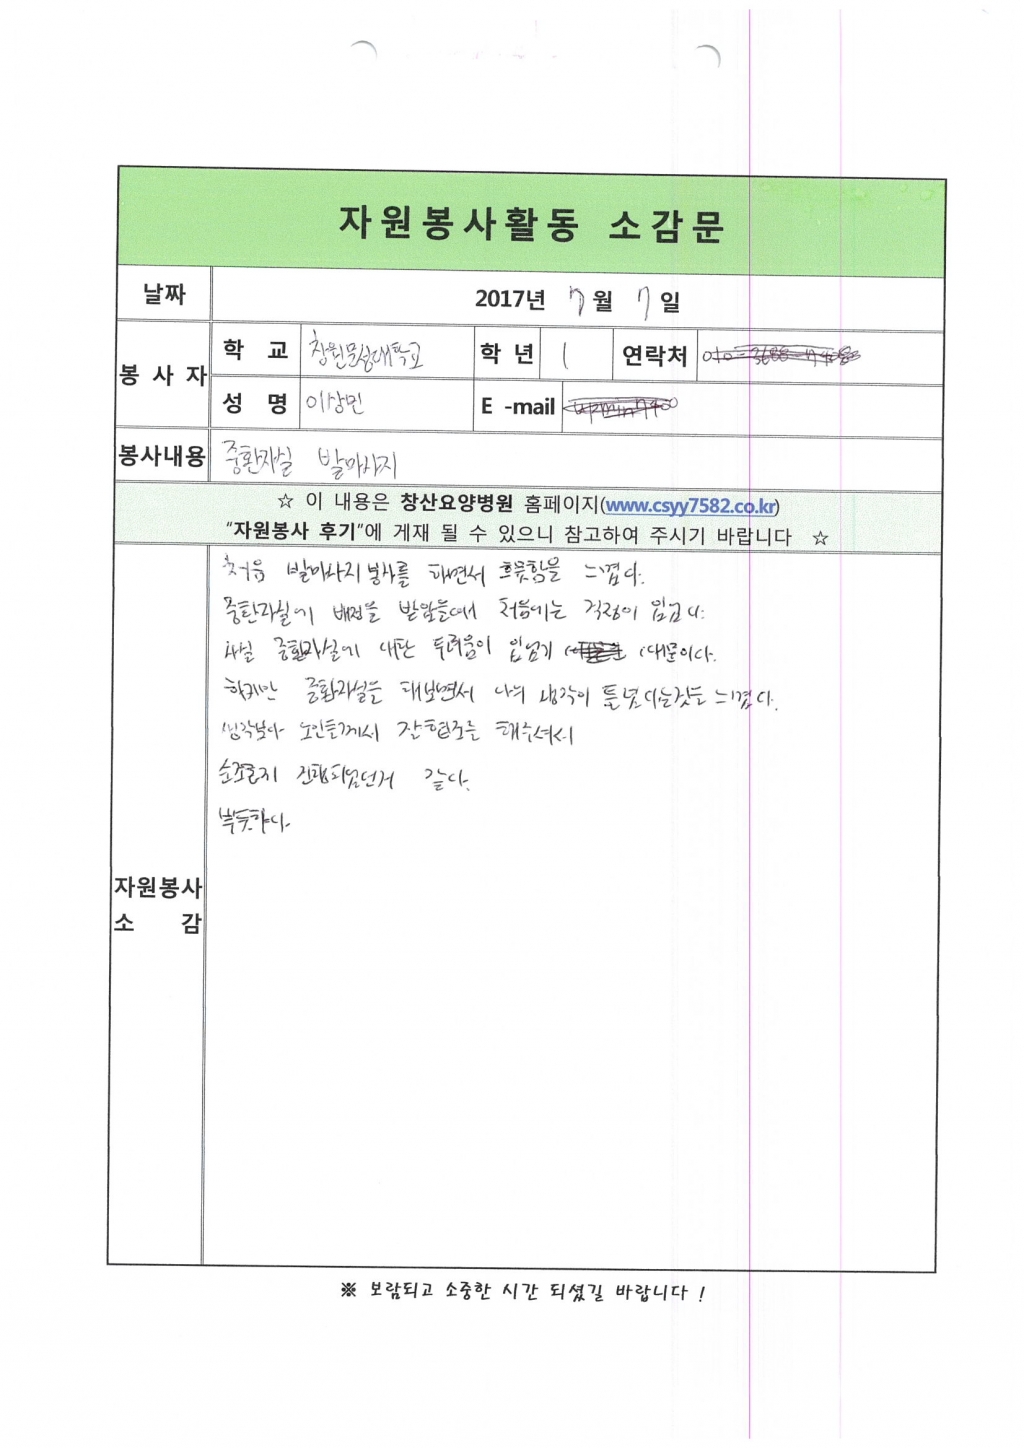 자원봉사활동 소감문
날짜 2017년 7월 7일
봉사자 학 교 창원문성대학교 학 년 1 연락처
성 명 이상민 E -mail
봉사내용 중환자실 발마사지
☆ 이 내용은 창산요양병원 홈페이지(www.csyy7582.co.kr)
“자원봉사 후기”에 게재 될 수 있으니 참고하여 주시기 바랍니다 ☆
처음 발마사지 봉사를 하면서 흐뭇함을 느꼈다.
중환자실에 배정을 받았을때 처음에는 걱정이 있었다.
사실 중환자실에 대한 두려움이 있었기 때문이다.
하지만 중환자실을 해보면서 나의 생각이 틀렸다는것을 느꼈다.
생각보다 노인들께서 잘 협조를 해주셔서
순조롭게 진행되었던거 같다.
뿌듯하다.
자원봉사
소 감
※ 보람되고 소중한 시간 되셨길 바랍니다 !